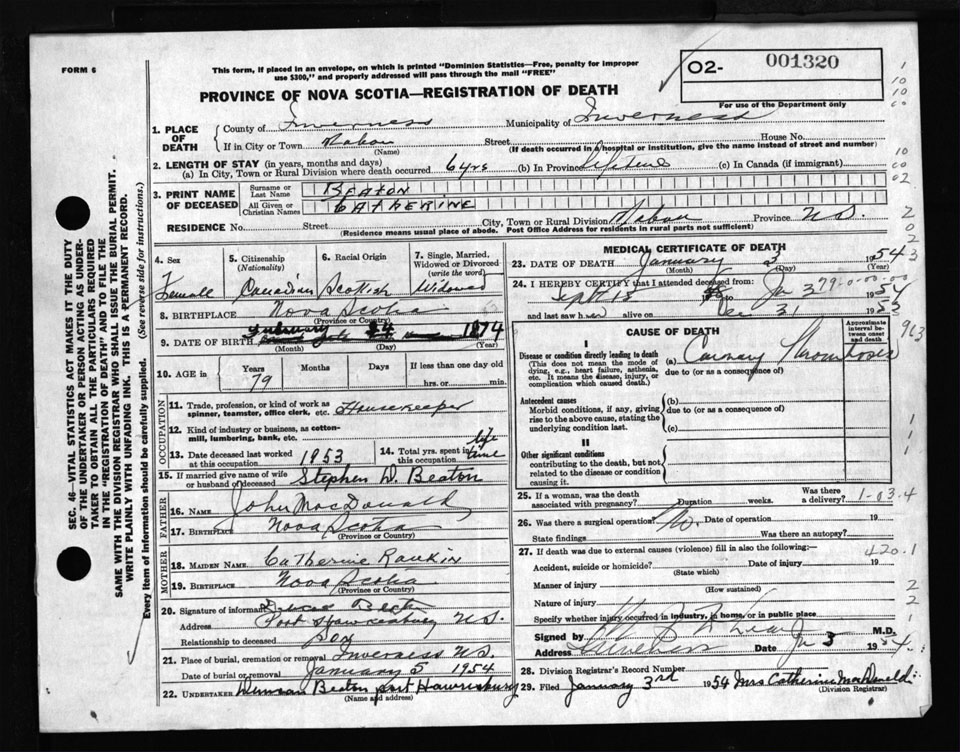 FORM 6
This form, if placed in an envelope, on which is printed "Dominion Statistics—Free, penalty for improper
use $300," and properly addressed will pass through the mail "FREE"
PROVINCE OF NOVA SCOTIA—REGISTRATION OF DEATH
O2- 001320
For use of the Department only
SEC. 46—VITAL STATISTICS ACT MAKES IT THE DUTY
OF THE UNDERTAKER OR PERSON ACTING AS UNDER-
TAKER TO OBTAIN ALL THE PARTICULARS REQUIRED
IN THE "REGISTRATION OF DEATH" AND TO FILE THE
SAME WITH THE DIVISION REGISTRAR WHO SHALL ISSUE THE BURIAL PERMIT.
WRITE PLAINLY WITH UNFADING INK. THIS IS A PERMANENT RECORD.
Every item of Information should be carefully supplied. (See reverse side for instructions.)
1. PLACE OF DEATH
County of Inverness Municipality of Inverness
If in City or Town Mabou Street House No.
(Name) (If death occurred in a hospital or institution, give the name instead of street and number)
2. LENGTH OF STAY (in years, months and days)
(a) In City, Town or Rural Division where death occurred 6 yrs (b) In Province Lifetime (c) In Canada (if immigrant)
3. PRINT NAME OF DECEASED
Surname or Last Name BEATON
All Given or Christian Names CATHERINE
RESIDENCE No. Street City, Town or Rural Division Mabou Province N.S.
(Residence means usual place of abode. Post Office Address for residents in rural parts not sufficient)
4. Sex Female
5. Citizenship (Nationality) Canadian
6. Racial Origin Scottish
7. Single, Married, Widowed or Divorced (write the word) Widowed
8. BIRTHPLACE Nova Scotia
(Province or Country)
9. DATE OF BIRTH February 24 1874
(Month) (Day) (Year)
10. AGE in Years 79 Months Days If less than one day old hrs. or min.
OCCUPATION
11. Trade, profession, or kind of work as spinner, teamster, office clerk, etc. Housekeeper
12. Kind of industry or business, as cotton-mill, lumbering, bank, etc.
13. Date deceased last worked at this occupation 1953
14. Total yrs. spent in this occupation life time
15. If married give name of wife or husband of deceased Stephen D. Beaton
FATHER
16. NAME John MacDonald
17. BIRTHPLACE Nova Scotia
(Province or Country)
MOTHER
18. MAIDEN NAME Catherine Rankin
19. BIRTHPLACE Nova Scotia
(Province or Country)
20. Signature of informant
Address Port Hawkesbury N.S.
Relationship to deceased Son
21. Place of burial, cremation or removal Inverness N.S.
Date of burial or removal January 5 1954
22. UNDERTAKER Duncan Beaton port Hawkesbury
(Name and address)
MEDICAL CERTIFICATE OF DEATH
23. DATE OF DEATH January 3 1954
(Month) (Day) (Year)
24. I HEREBY CERTIFY that I attended deceased from:
Sept 15 to Jan 3 1954
and last saw her alive on Dec 31 1953
CAUSE OF DEATH
Approximate interval between onset and death
I
Disease or condition directly leading to death
(This does not mean the mode of dying, e.g., heart failure, asthenia, etc. It means the disease, injury, or complication which caused death.)
(a) Coronary Thrombosis
due to (or as a consequence of)
Antecedent causes
Morbid conditions, if any, giving rise to the above cause, stating the underlying condition last.
(b)
due to (or as a consequence of)
(c)
II
Other significant conditions
contributing to the death, but not related to the disease or condition causing it.
25. If a woman, was the death associated with pregnancy? Duration weeks. Was there a delivery? 1-03.4
26. Was there a surgical operation? No. Date of operation 19
State findings Was there an autopsy?
27. If death was due to external causes (violence) fill in also the following:— 420.1
Accident, suicide or homicide? Date of injury 19
(State which)
Manner of injury
(How sustained)
Nature of injury
Specify whether injury occurred in industry, in home, or in public place
Signed by M.D.
Address Inverness Date Jan 3 1954
28. Division Registrar's Record Number
29. Filed January 3rd 1954 Mrs Catherine MacDonald
(Division Registrar)